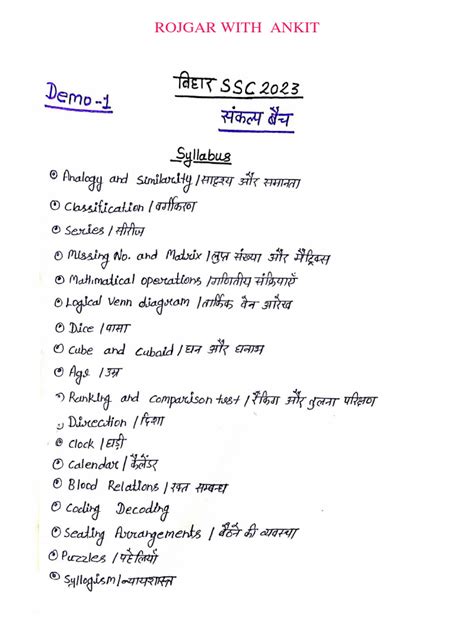 ROJGAR WITH ANKIT
बिहार SSC 2023
Demo-1
संकल्प बैच
Syllabus
Analogy and similarity / सादृश्य और समानता
Classification / वर्गीकरण
Series / सीरीज
Missing No. and Matrix / लुप्त संख्या और मैट्रिक्स
Mathmatical operations / गणितीय संक्रियाएँ
Logical Venn diagram / तार्किक वेन आरेख
Dice / पासा
Cube and Cuboid / घन और घनाभ
Age / उम्र
Ranking and comparison test / रैंकिंग और तुलना परिक्षण
Direction / दिशा
Clock / घड़ी
Calendar / कैलेंडर
Blood Relations / रक्त सम्बन्ध
Coding Decoding
Seating Arrangements / बैठने की व्यवस्था
Puzzles / पहेलियाँ
Syllogism / न्यायशास्त्र